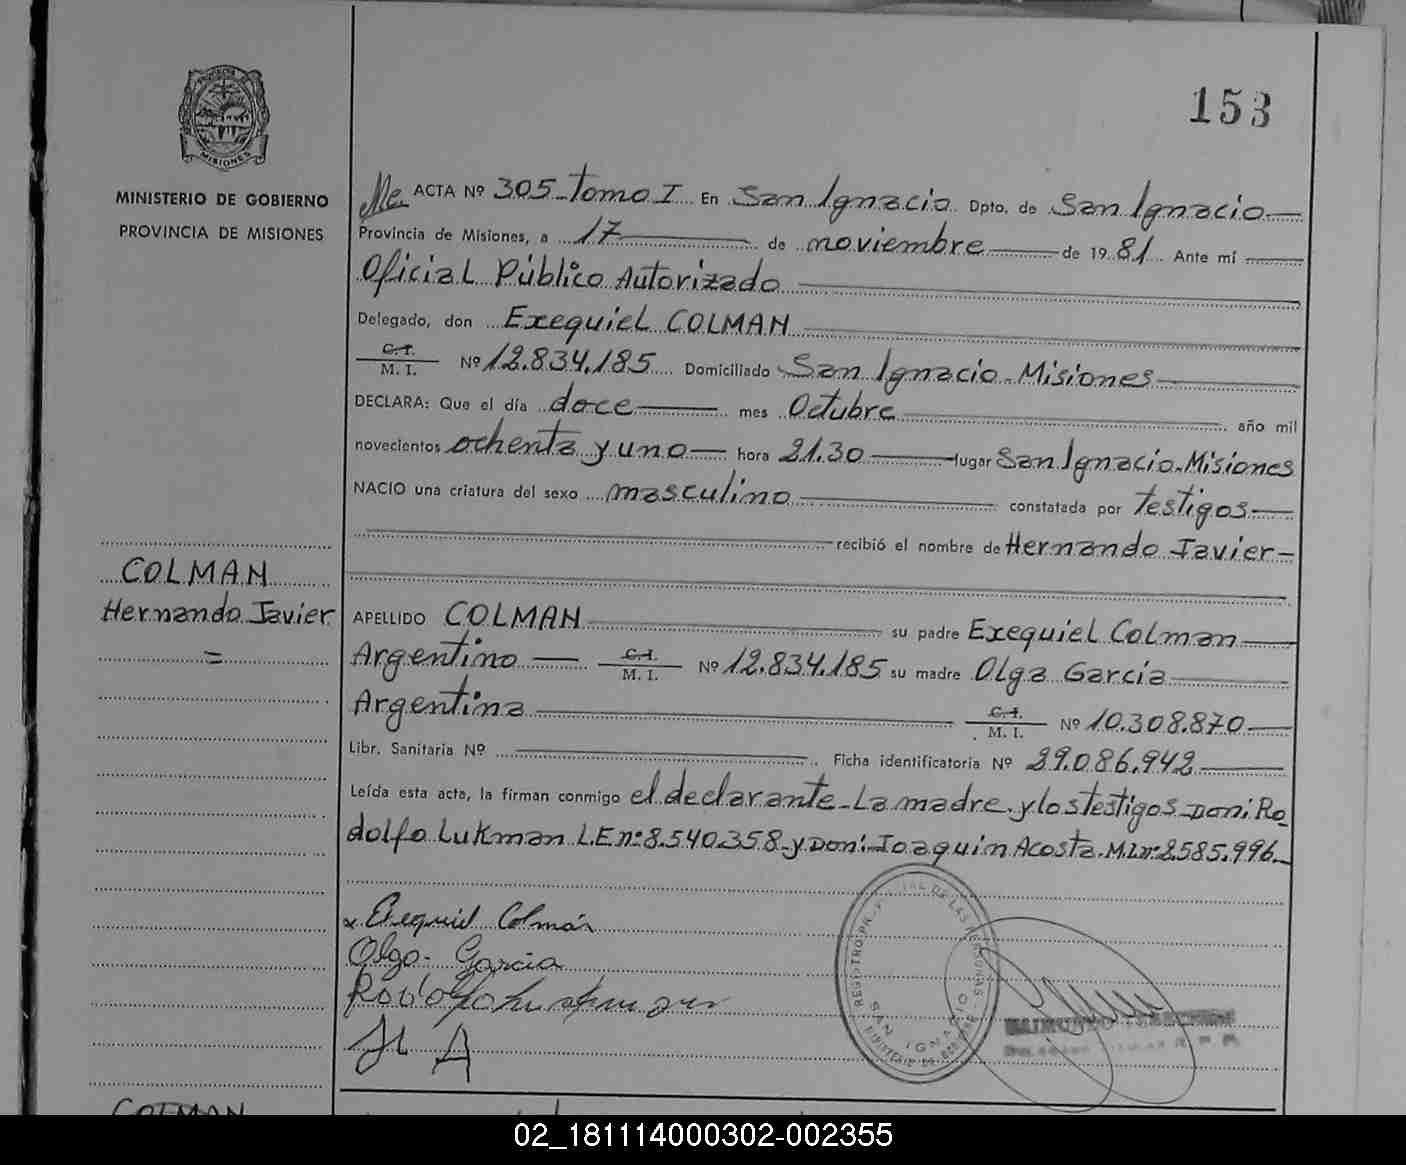 153
MISIONES
MINISTERIO DE GOBIERNO
PROVINCIA DE MISIONES
ACTA Nº 305-Tomo I En San Ignacio Dpto. de San Ignacio
Provincia de Misiones, a 17 de noviembre de 1981 Ante mi
Oficial Público Autorizado
Delegado, don Exequiel COLMAN
C.I. M. I. Nº 12.834.185 Domiciliado San Ignacio-Misiones
DECLARA: Que el día doce mes Octubre año mil
novecientos ochenta y uno hora 21.30 lugar San Ignacio-Misiones
NACIO una criatura del sexo masculino constatada por testigos
recibió el nombre de Hernando Javier
COLMAN
Hernando Javier
=
APELLIDO COLMAN su padre Exequiel Colman
Argentino C.I. M. I. Nº 12.834.185 su madre Olga Garcia
Argentina C.I. M. I. Nº 10.308.870
Libr. Sanitaria Nº Ficha identificatoria Nº 29.086.942
Leída esta acta, la firman conmigo el declarante-La madre y los testigos-Don: Ro
dolfo Lukman L.E nº: 8.540.358-y Don: Joaquin Acosta-M.I.nº: 8.585.996.
x Exequiel Colmán
Olga Garcia
SAN IGNACIO
COLMAN
02_181114000302-002355